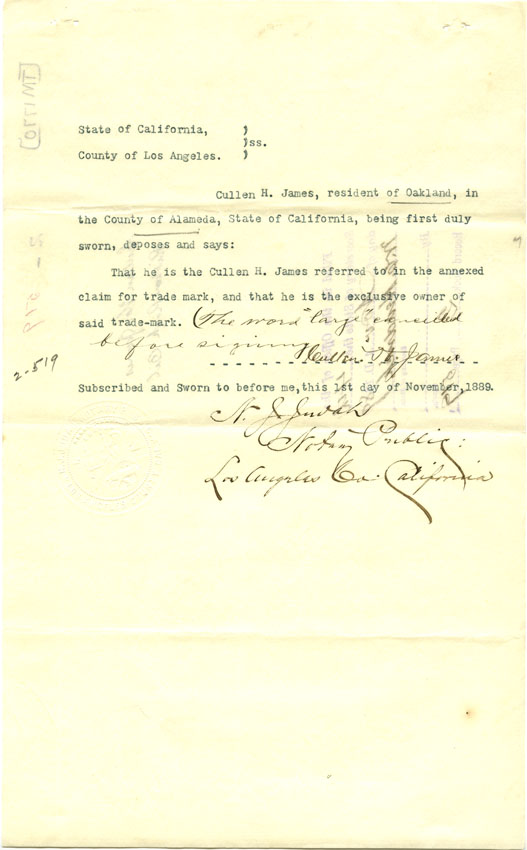 State of California, )
)ss.
County of Los Angeles. )
Cullen H. James, resident of Oakland, in
the County of Alameda, State of California, being first duly
sworn, deposes and says:
That he is the Cullen H. James referred to in the annexed
claim for trade mark, and that he is the exclusive owner of
said trade-mark. (The word "large" cancelled
before signing
Cullen H. James
2-519
Subscribed and Sworn to before me, this 1st day of November, 1889.
N. J. Judah
Notary Public:
Los Angeles Co: California